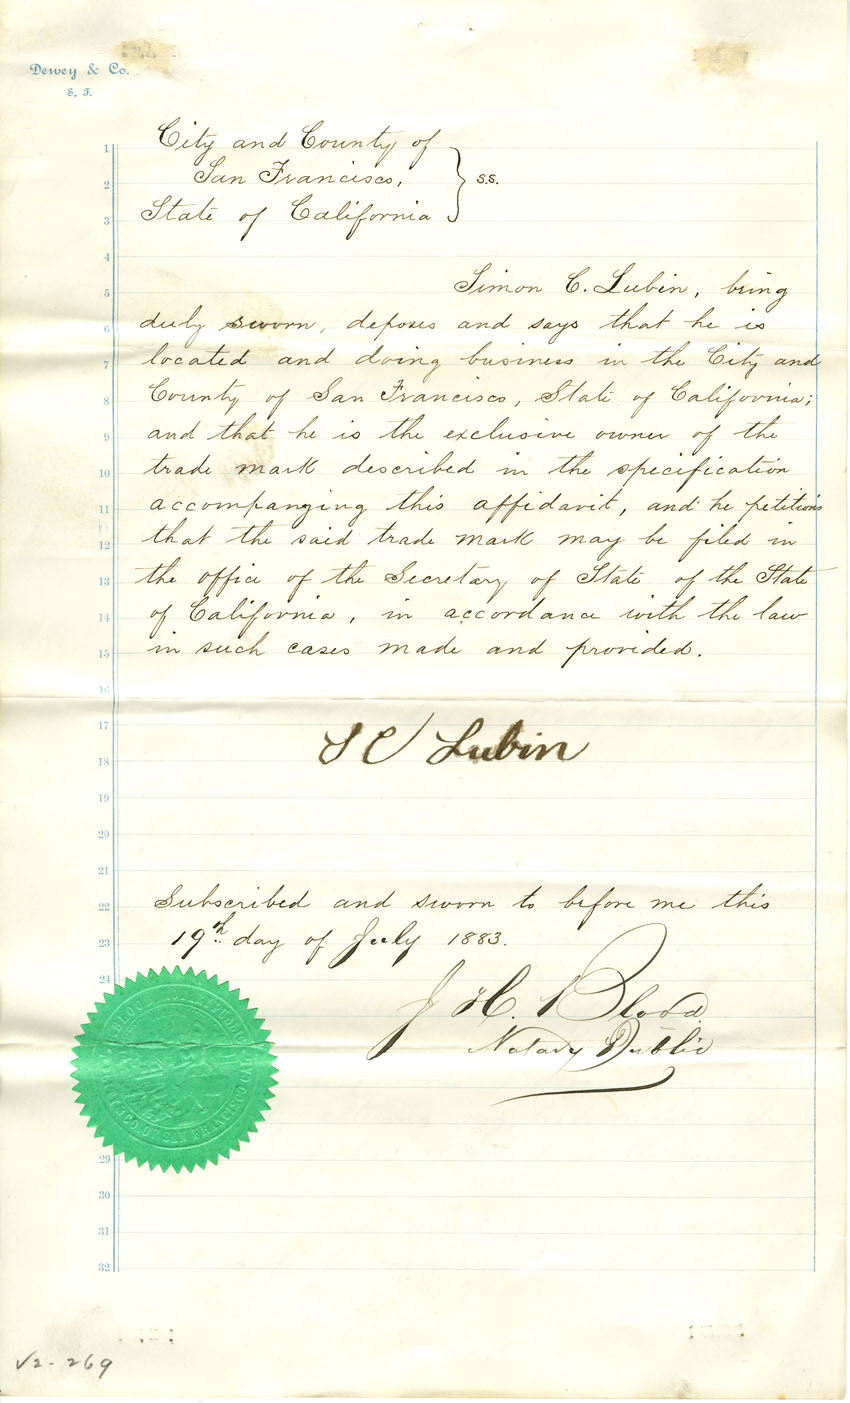 Dewey & Co.
S. F.
City and County of
San Francisco,
State of California
} s.s.
Simon C. Lubin, being
duly sworn, deposes and says that he is
located and doing business in the City and
County of San Francisco, State of California;
and that he is the exclusive owner of the
trade mark described in the specification
accompanying this affidavit, and he petitions
that the said trade mark may be filed in
the office of the Secretary of State of the State
of California, in accordance with the law
in such cases made and provided.
S C Lubin
Subscribed and sworn to before me this
19th day of July 1883.
J. H. Blood
Notary Public
1
2
3
4
5
6
7
8
9
10
11
12
13
14
15
16
17
18
19
20
21
22
23
24
29
30
31
32
V2-269